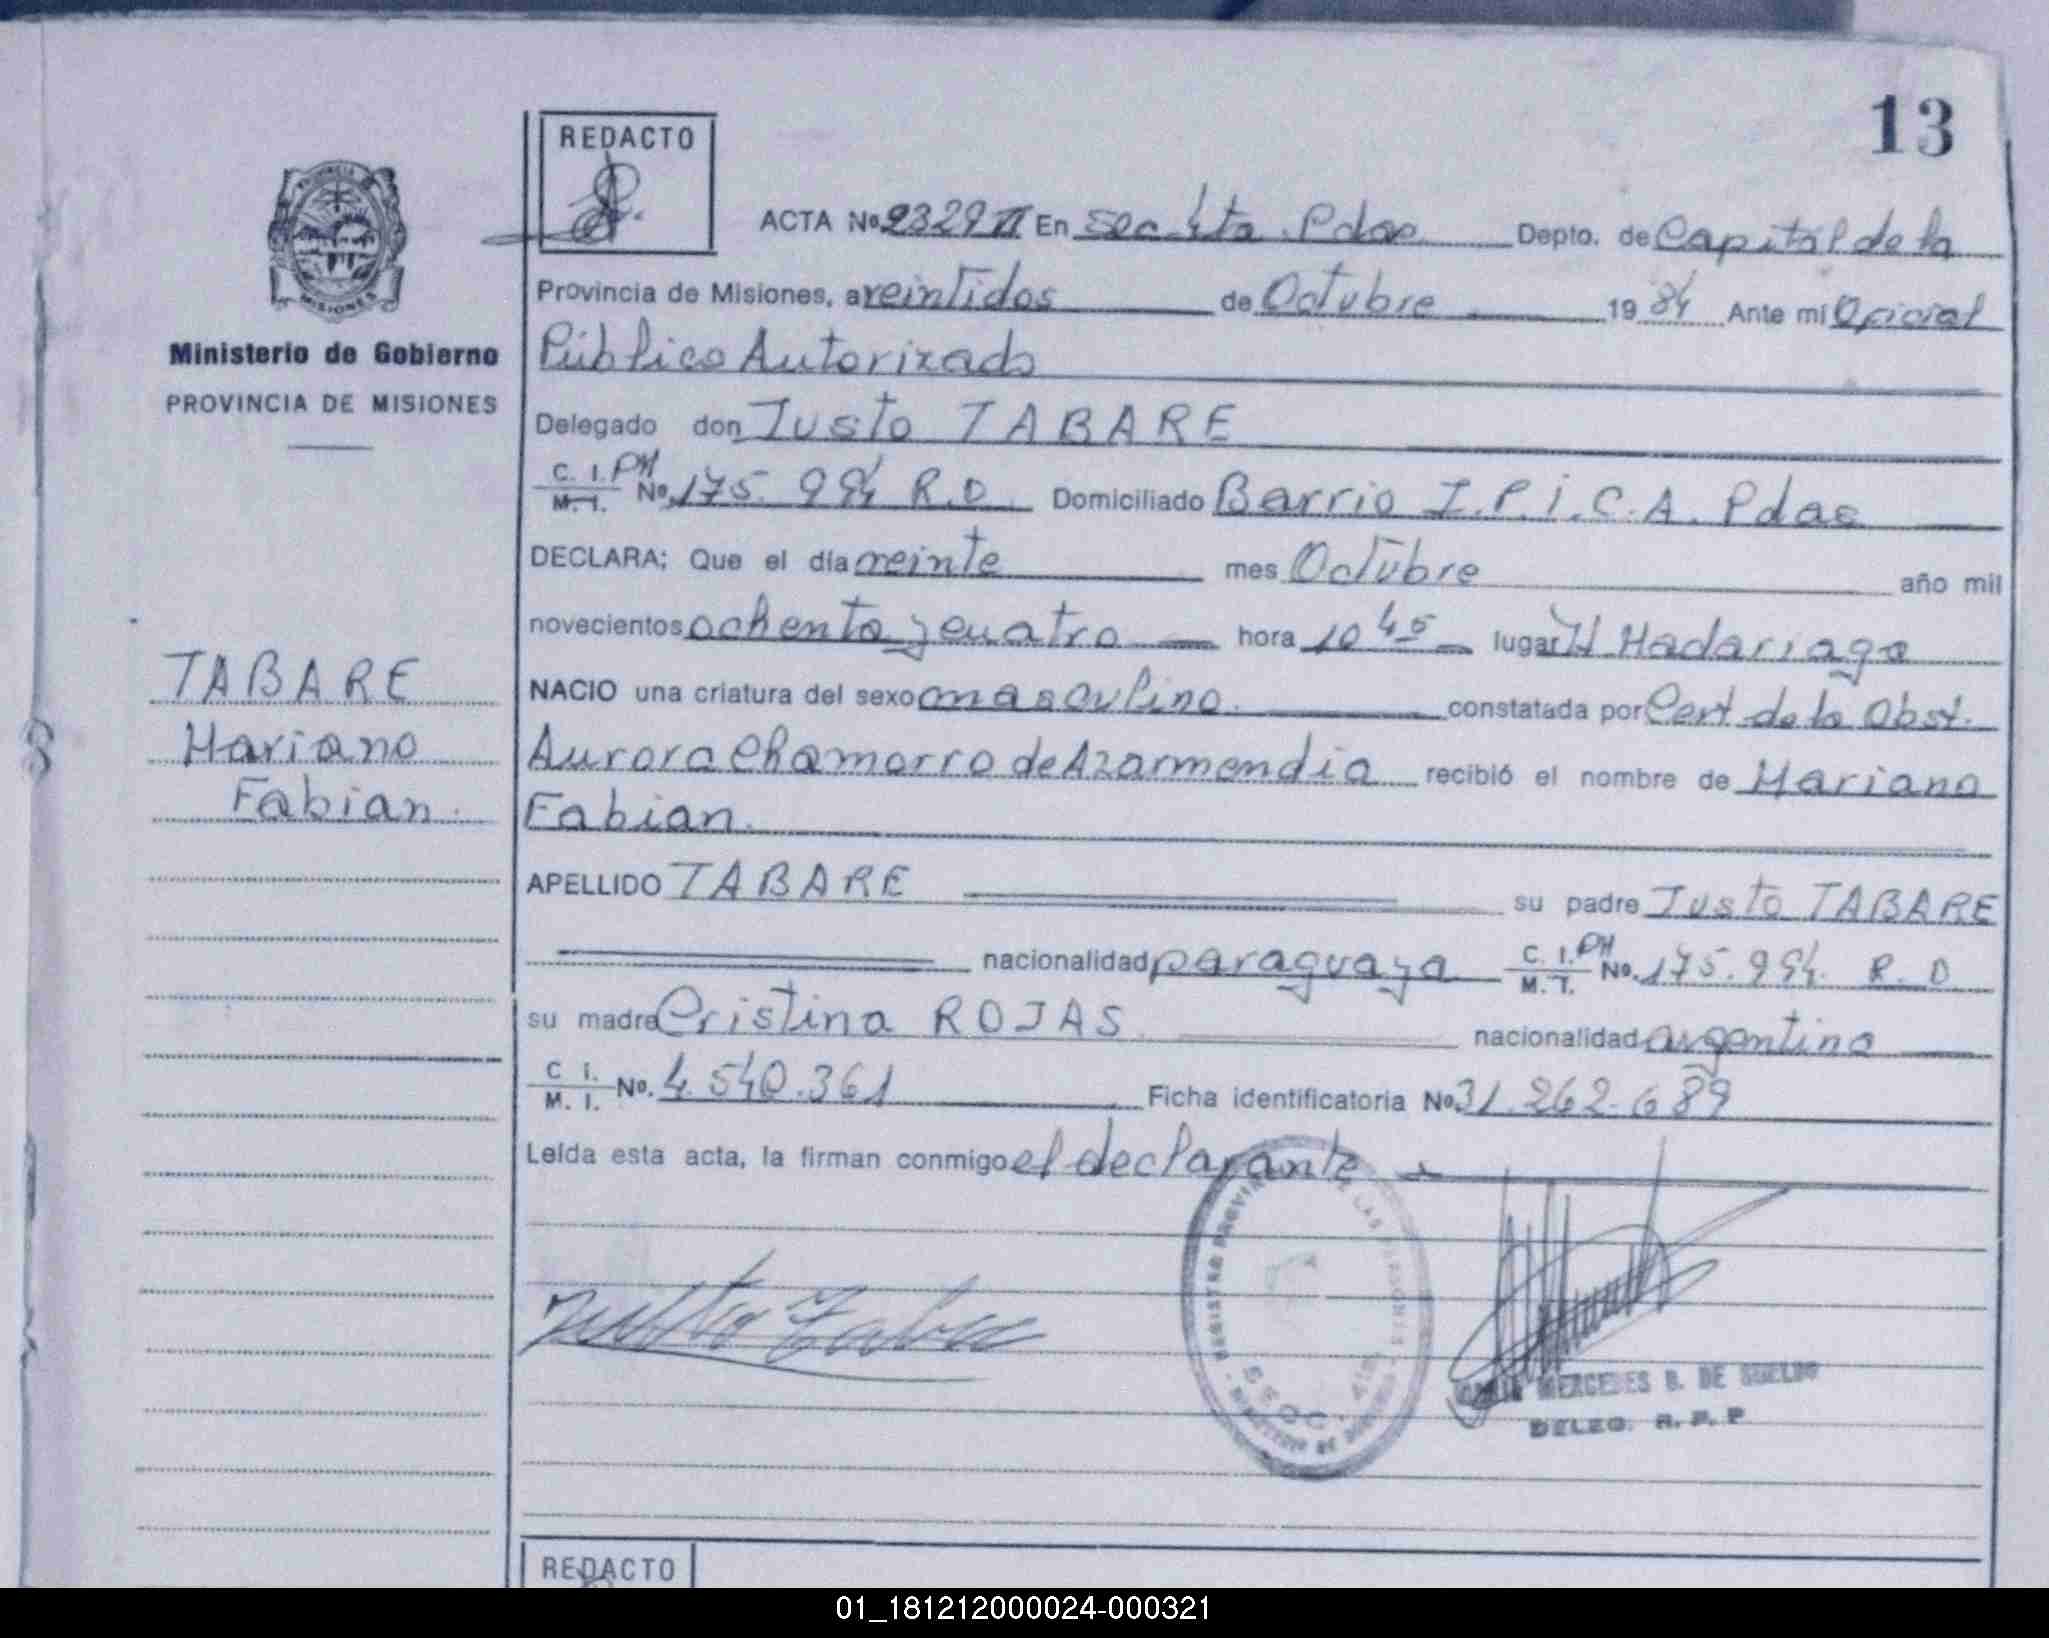 13
REDACTO
ACTA Nº 2329 II En Sec 4ta Pdas Depto. de Capital de la
Provincia de Misiones, a veintidos de Octubre 1984 Ante mí Oficial
Público Autorizado
Delegado don Justo TABARE
C. I. PM
M. I. Nº 175.994 R.O Domiciliado Barrio I.P.I.C.A. Pdas
DECLARA; Que el día veinte mes Octubre año mil
novecientos ochenta y cuatro hora 10 45 lugar H Madariaga
NACIO una criatura del sexo masculino. constatada por Cert de la Obst.
Aurora Chamorro de Azarmendia recibió el nombre de Mariano
Fabian.
APELLIDO TABARE su padre Justo TABARE
nacionalidad paraguaya C. I. PM
M. I. No. 175.994. R.O
su madre Cristina ROJAS nacionalidad argentina
C I.
M. I. No. 4.540.361 Ficha identificatoria No 31.262.689
Leída esta acta, la firman conmigo el declarante
Justo Tabare
REGISTRO PROVINCIAL DE LAS PERSONAS
SECC. 4ta
MERCEDES B. DE SUELDO
DELEG. R. P. P
PROVINCIA DE
MISIONES
Ministerio de Gobierno
PROVINCIA DE MISIONES
TABARE
Mariano
Fabian.
REDACTO
01_181212000024-000321